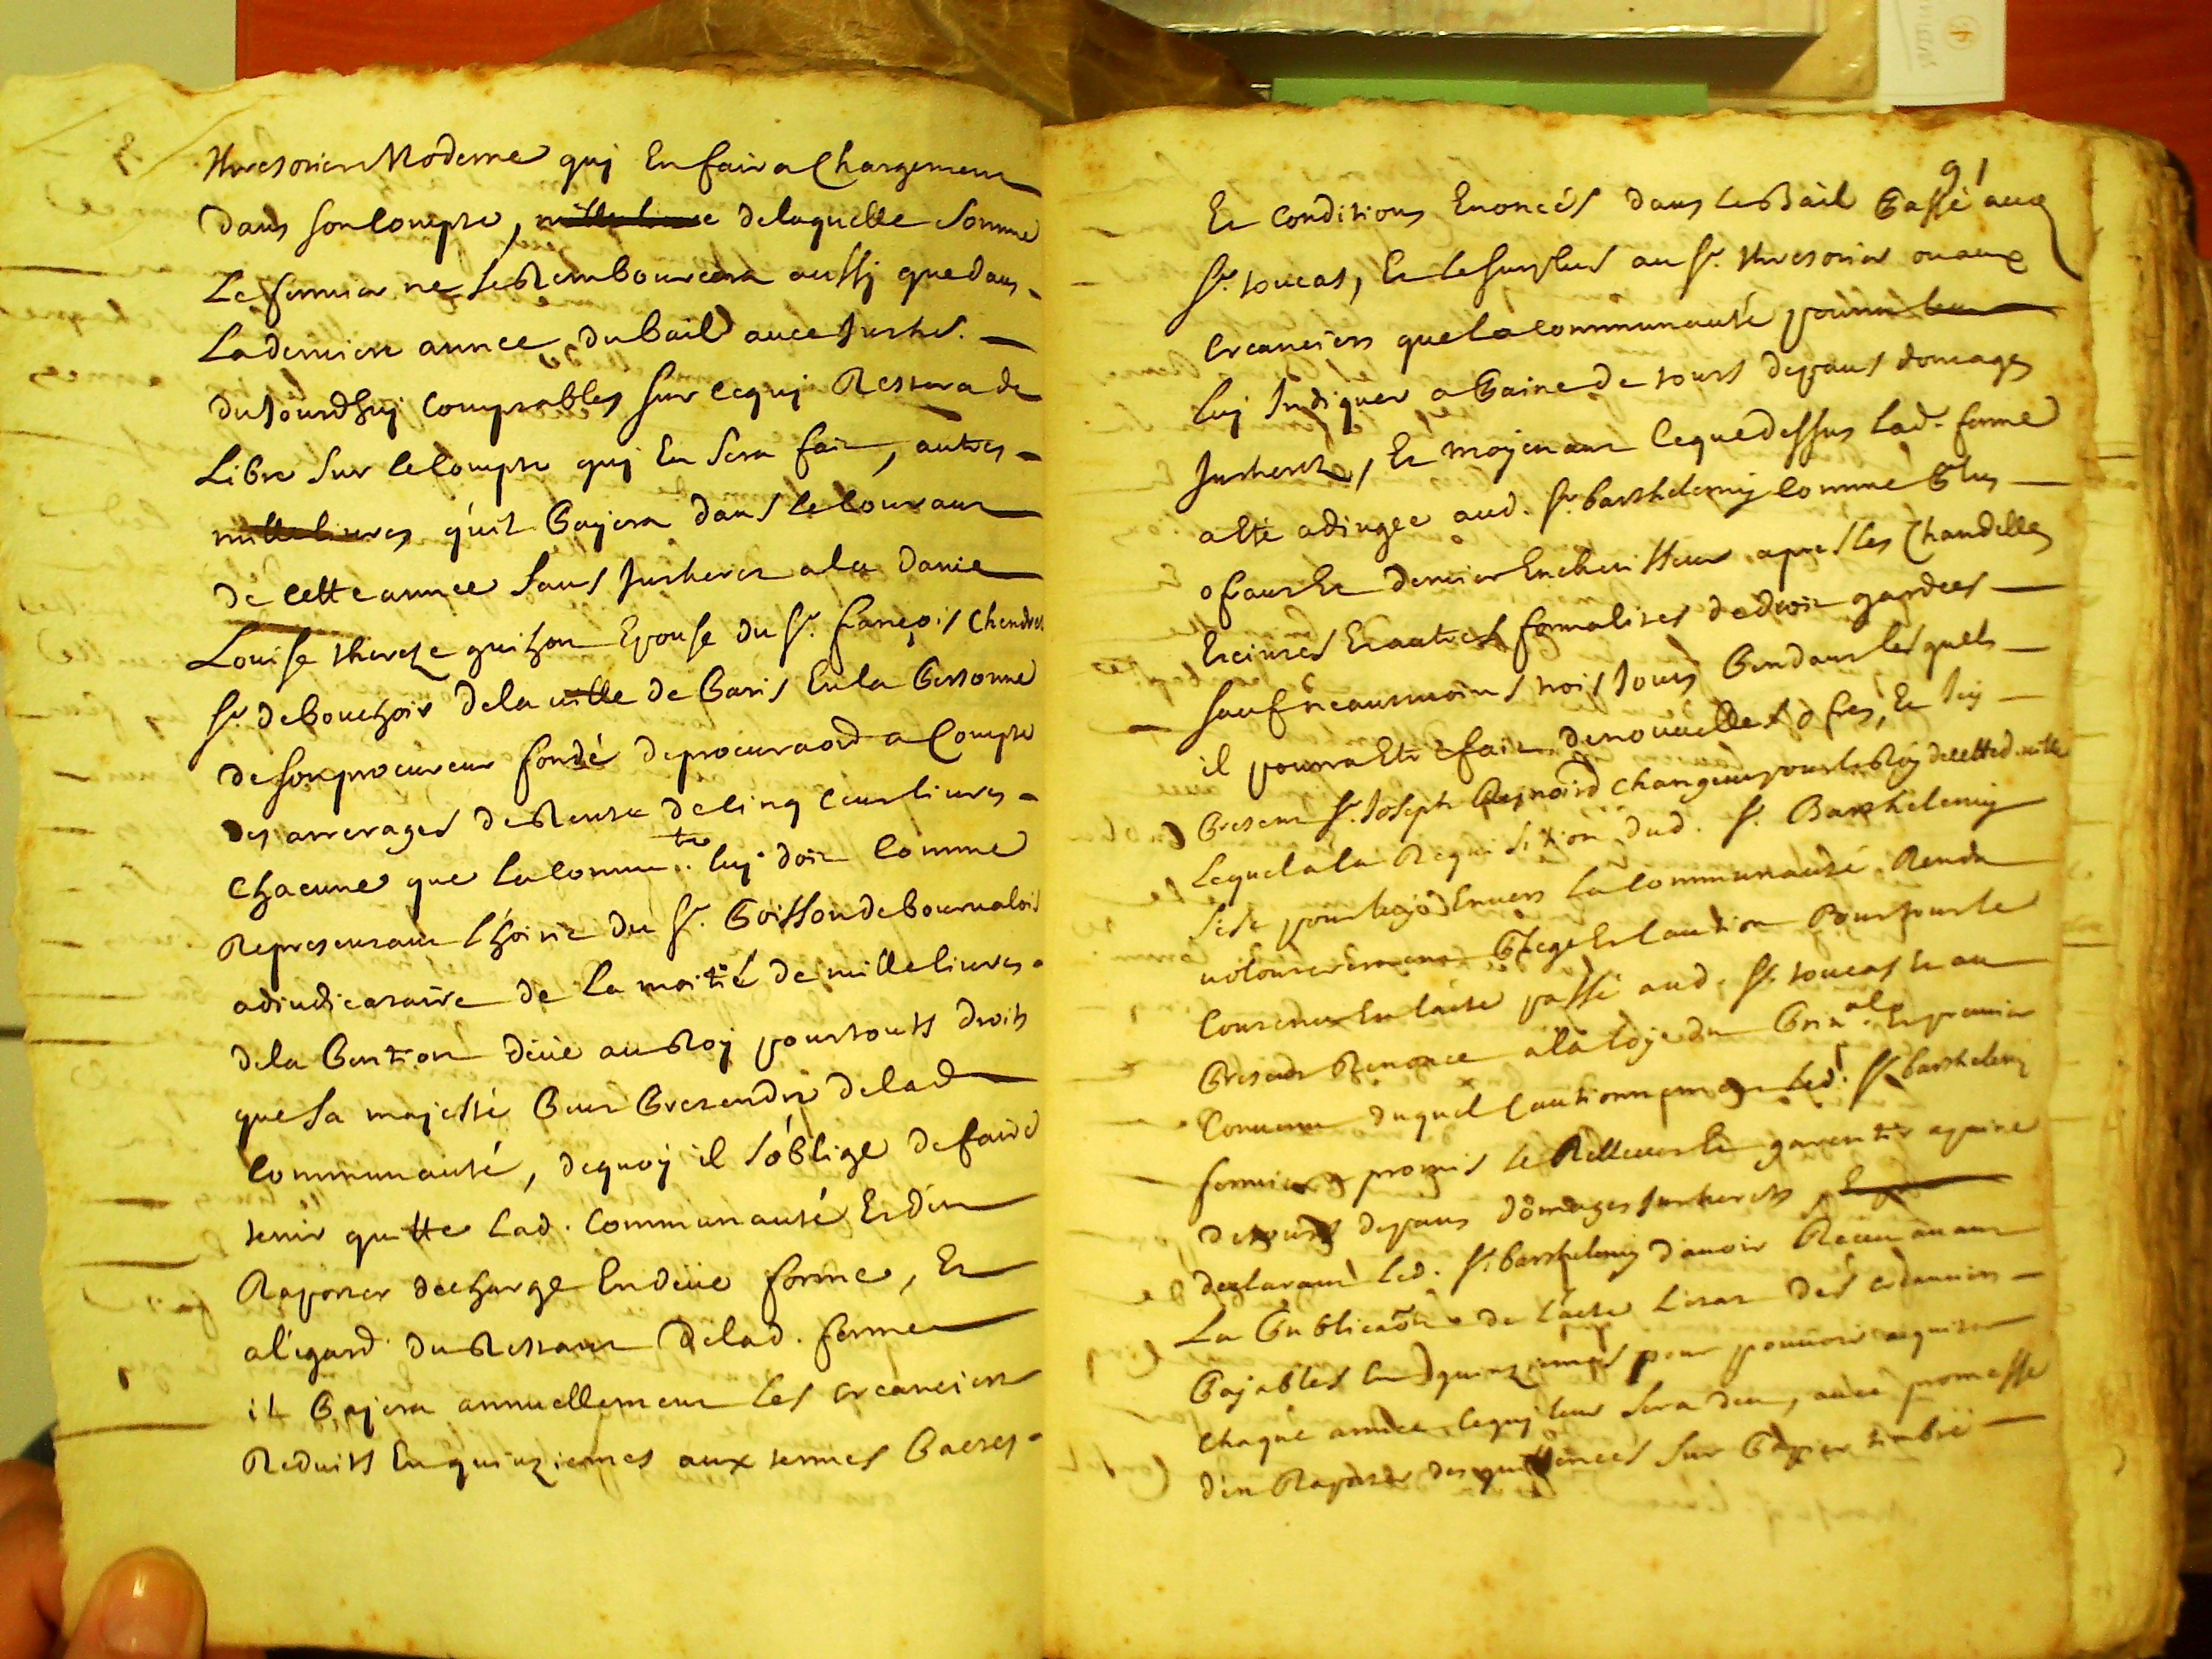 thresorier Moderne quj En faira Chargement
dans son Compte, delaquelle Somme
Le fermier ne se Rembourcera aussj que dans
La derniere annee du bail avec Inthts.
du Jourdhuj Comptables sur cequj Restera de
Libre Sur le Compte quj En Sera fait, autres
mille livres qu'il Payera dans le Courant
de cette annee Sans Interests a la Damle
Louise thereze guihon Epouse du Sr. françois Chendret
Sr. debouchoir de la ville de Paris En la Personne
de son procureur fondé de procuraōn a Compte
des arrerages de Rente de Cinq Cent livres
Chacune que la Commu.te luj doit Comme
Representant l'hoirie du Sr. Poisson de bourvalois
adiudicataire de La moitié de mille livres
de la Pention deüe au Roy pour touts droits
que Sa majesté Peut Pretendre de lad.
Communauté, dequoy il s'oblige de faire
tenir quitte Lad. Communauté Et d'en
Raporter decharge En deüe forme, Et
a l'égard du Restant de lad. ferme
il Payera annuellement Les Creanciers
Reduits En quinziemes aux termes Pactes
91
Et Conditions Enoncés dans le Bail Passé aux
Sr. toucas, Et le surplus au Sr. thresorier ou aux
Creanciers que la Communauté pourra
luj Indiquer a Paine de touts depans domages
Interests, Et moyenant Ceque dessus Lad. ferme
a Eté adiugée aud. Sr. barthelemy Comme Plus
ofrant Et dernier Encherisseur apres les Chandelles
Eteintes Et autres formalités de droit gardées
sauf neantmoins trois Jours Pendant lesquels
il pourra Etre fait de nouvelles ofres, Et Icy
Present Sr. Joseph Reynoird Changeur pour le Roy de cette d. ville
Lequel a la Requisition dud. Sr. Barthelemy
s'est pour luy Envers La Communauté Rendu
volonterement Plege Et Caution Pour tout le
Contenu En l'acte passé aud. Sr. toucas Et au
Present Renonce a la loy du Prin.al Et premier
Convenu duquel Cautionnement Led. Sr. barthelemy
fermier a promis le Rellever Et garentir a paine
de touts depans domages Interests,
declarant Led. Sr. barthelemy d'avoir Receu avant
La Publicaōn de l'acte L'etat des creanciers
Payables En quinziemes pour pouvoir aquiter
chaque année Cequj leur Sera deu, avec promesse
d'en Raporter des quittances sur Papier timbré